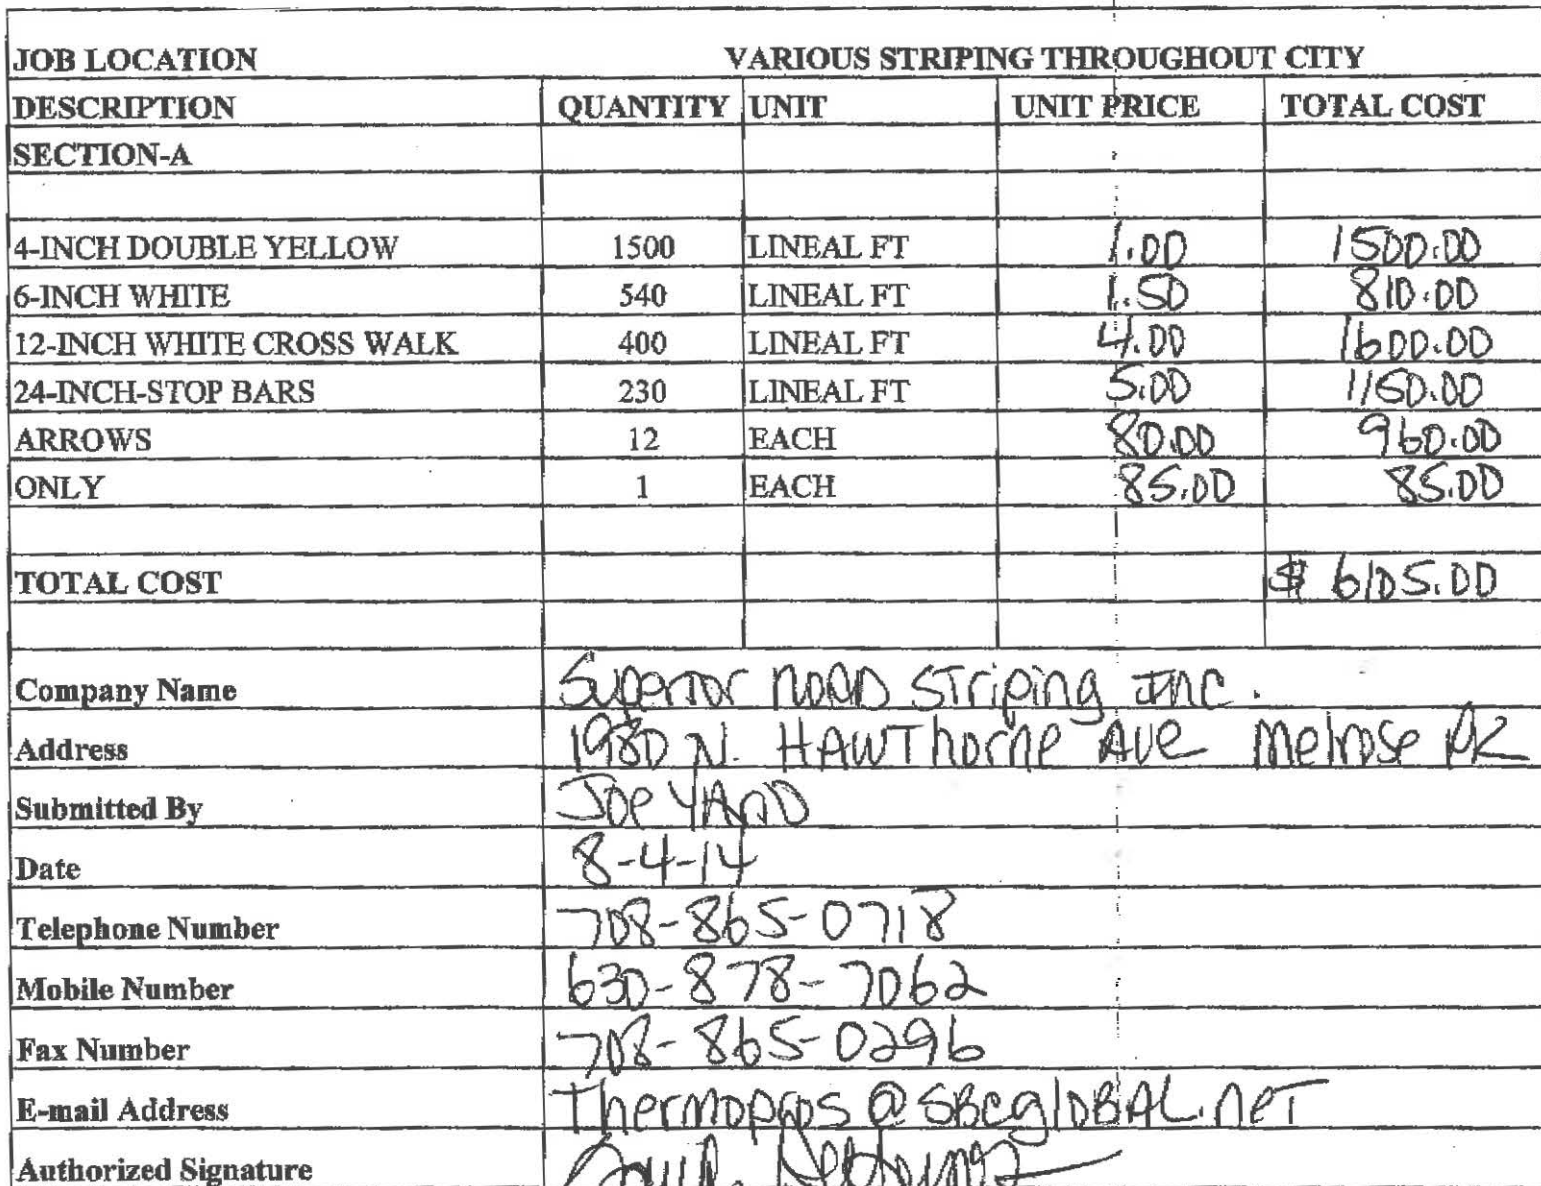 JOB LOCATION VARIOUS STRIPING THROUGHOUT CITY
DESCRIPTION QUANTITY UNIT UNIT PRICE TOTAL COST
SECTION-A
4-INCH DOUBLE YELLOW 1500 LINEAL FT 1.00 1500.00
6-INCH WHITE 540 LINEAL FT 1.50 810.00
12-INCH WHITE CROSS WALK 400 LINEAL FT 4.00 1600.00
24-INCH-STOP BARS 230 LINEAL FT 5.00 1150.00
ARROWS 12 EACH 80.00 960.00
ONLY 1 EACH 85.00 85.00
TOTAL COST $ 6105.00
Company Name Superior ROAD STriping Inc.
Address 1980 N. HAWThorne AVe Melrose PK
Submitted By Joe YARD
Date 8-4-14
Telephone Number 708-865-0718
Mobile Number 630-878-7062
Fax Number 708-865-0296
E-mail Address Thermopros@SBCglOBAL.neT
Authorized Signature